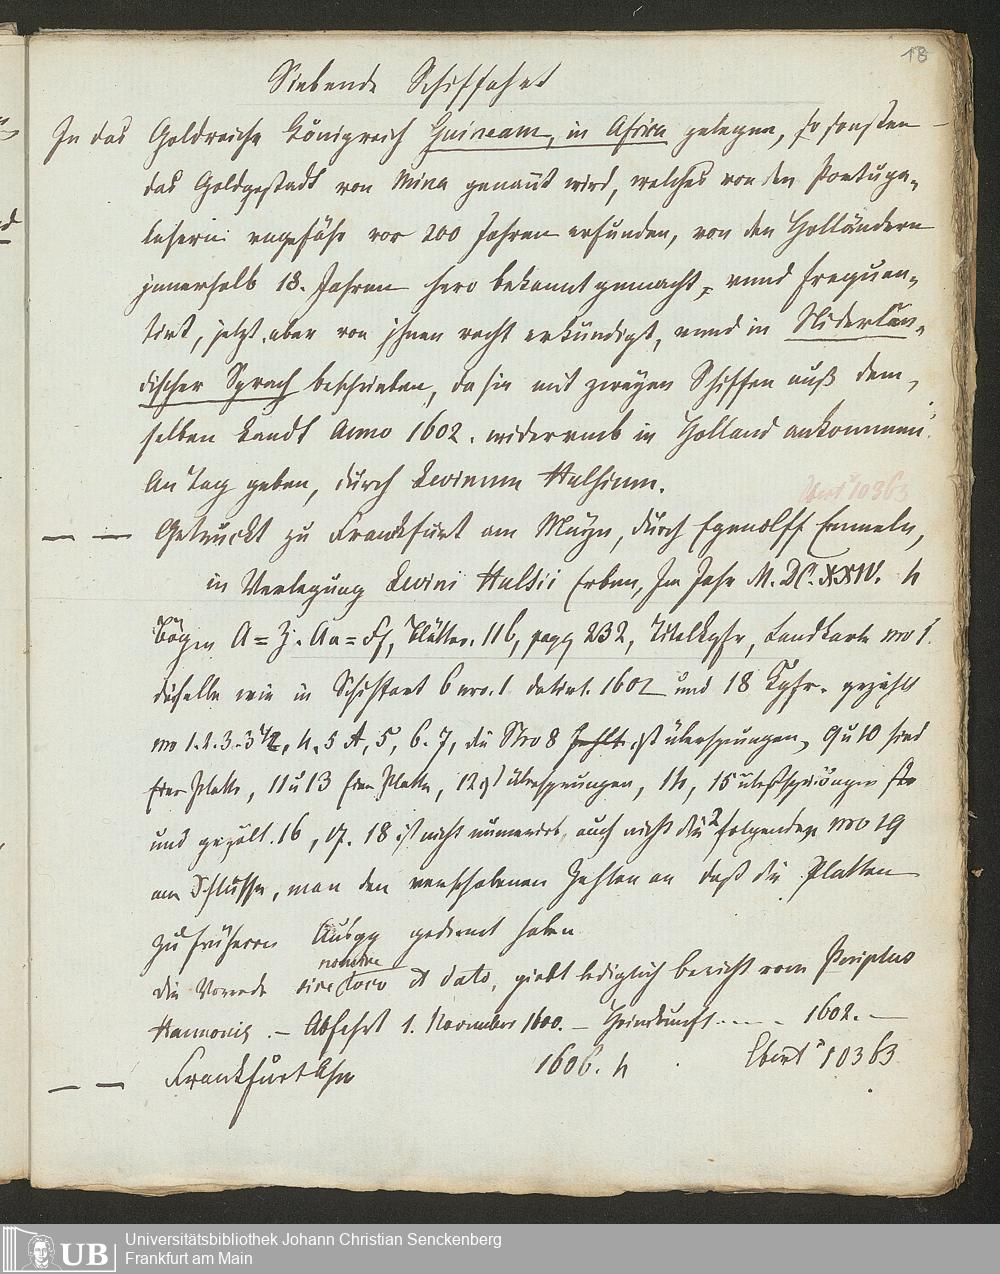 18
Siebende Schiffahrt
In das Goldreiche Königreich Guineam, in Africa gelegen, so sonsten
das Goldgestadt von Mina genant wird, welches von den Portuga-
lesern ungefähr vor 200 Jahren erfunden, von den Holländern
innerhalb 18. Jahren hero bekannt gemacht, unnd frequen-
tirt, jetzt aber von ihnen recht erkündigt, unnd in Niderlän-
discher Sprach beschrieben, da sie mit zweyen Schiffen auß dem-
selben Landt Anno 1602. widerumb in Holland ankommen.
An Tag geben, durch Levinum Hulsium.
Ebert 10363
— — Getruckt zu Franckfurt am Mayn, durch Egenolff Emmeln,
in Verlegung Levini Hulsii Erben, Im Jahr M. DC. XXIV. 4
Bögen A=Z. Aa=Ff, Blätter. 116, pagg 232, Titelkpfr, Landkarte no 1.
dieselbe wie in Schiffart 6 nro. 1 datirt. 1602 und 18 Kpfr. gezählt
no 1. 2. 3. 3 1/2, 4, 5 A, 5, 6. 7, die Nro 8 fehlt ist übersprungen, 9 u 10 sind
eine Platte, 11 u 13 eine Platte, 12 ist übersprungen, 14, 15 übersprungen
und gezält. 16, 17. 18 ist nicht numerirt, auch nicht die 2 folgenden no 19
am Schlusse, man den verschobenen Zahlen an daß die Platten
zu früheren Ausgg gedient haben
die Vorrede sine loco et dato, giebt lediglich bericht vom Periplus
nomine
Hannonis. — Abfahrt 1. November 1600. — 1602. —
— — Franckfurt 1606. 4 Ebert 10363
UB Universitätsbibliothek Johann Christian Senckenberg
Frankfurt am Main